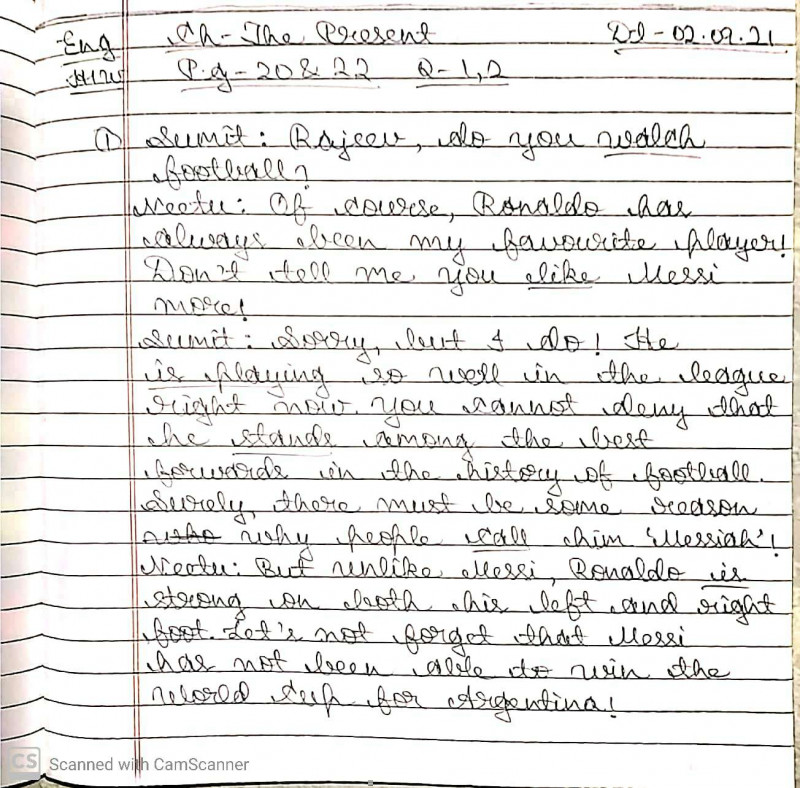 Eng Ch- The Present Dt - 02.09.21
H.W P.g - 20 & 22 Q- 1,2
① Sumit: Rajeev, do you watch
football?
Neetu: Of course, Ronaldo has
always been my favourite player!
Don't tell me you like Messi
more!
Sumit: Sorry, but I do! He
is playing so well in the league
right now. You cannot deny that
he stands among the best
forwards in the history of football.
Surely, there must be some reason
why people call him 'Messiah'!
Neetu: But unlike Messi, Ronaldo is
strong on both his left and right
foot. Let's not forget that Messi
has not been able to win the
World Cup for Argentina!
CS Scanned with CamScanner